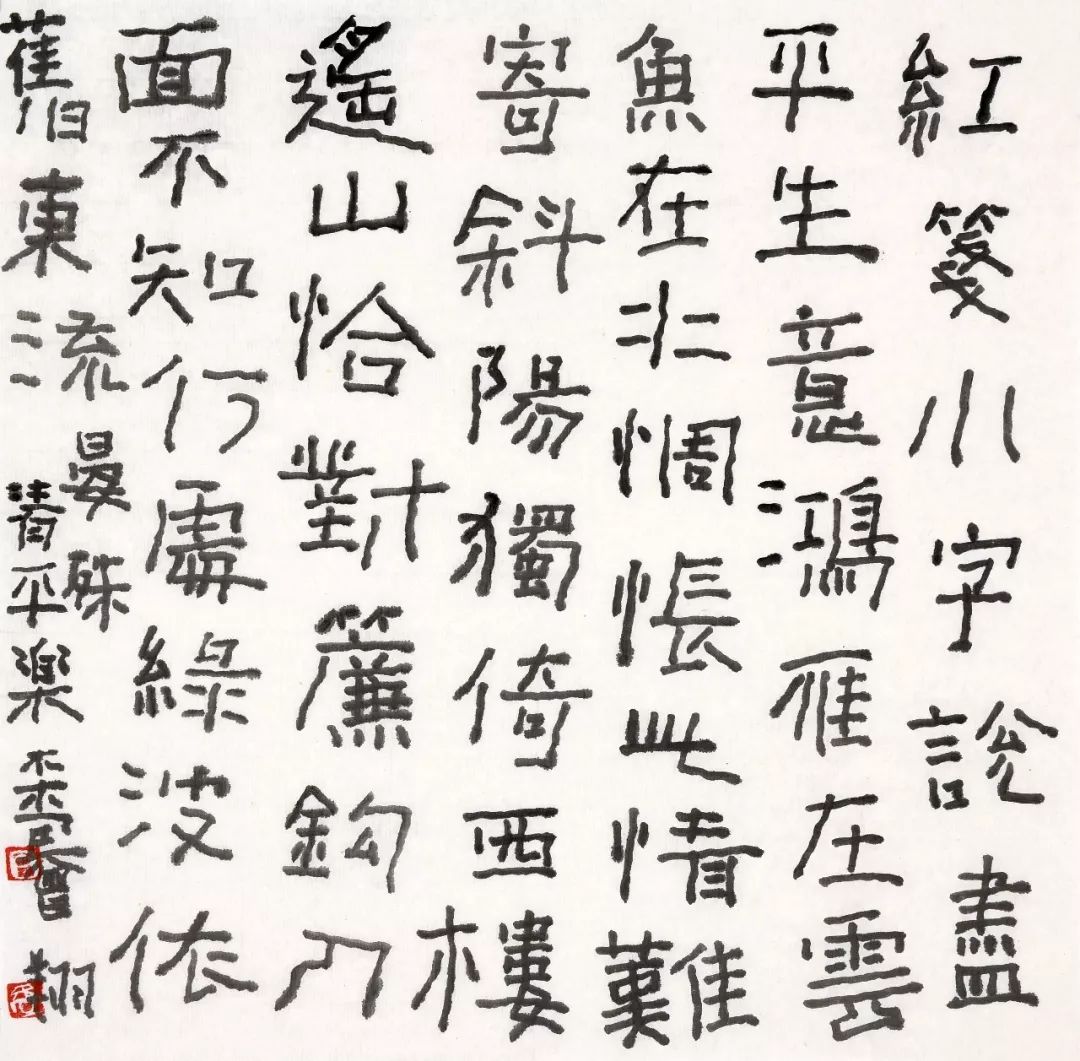 紅箋小字說盡
平生意鴻雁在雲
魚在水惆悵此情難
寄斜陽獨倚西樓
遙山恰對簾鈎人
面不知何處綠波依
舊東流
晏殊
清平樂
曾翔